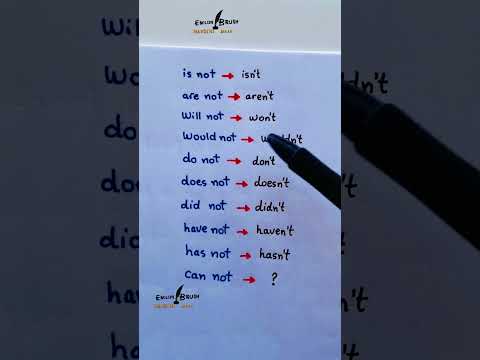 BRUSH
is not → isn't
are not → aren't
will not → won't
would not → wouldn't
do not → don't
does not → doesn't
did not → didn't
have not → haven't
has not → hasn't
can not → ?
BRUSH